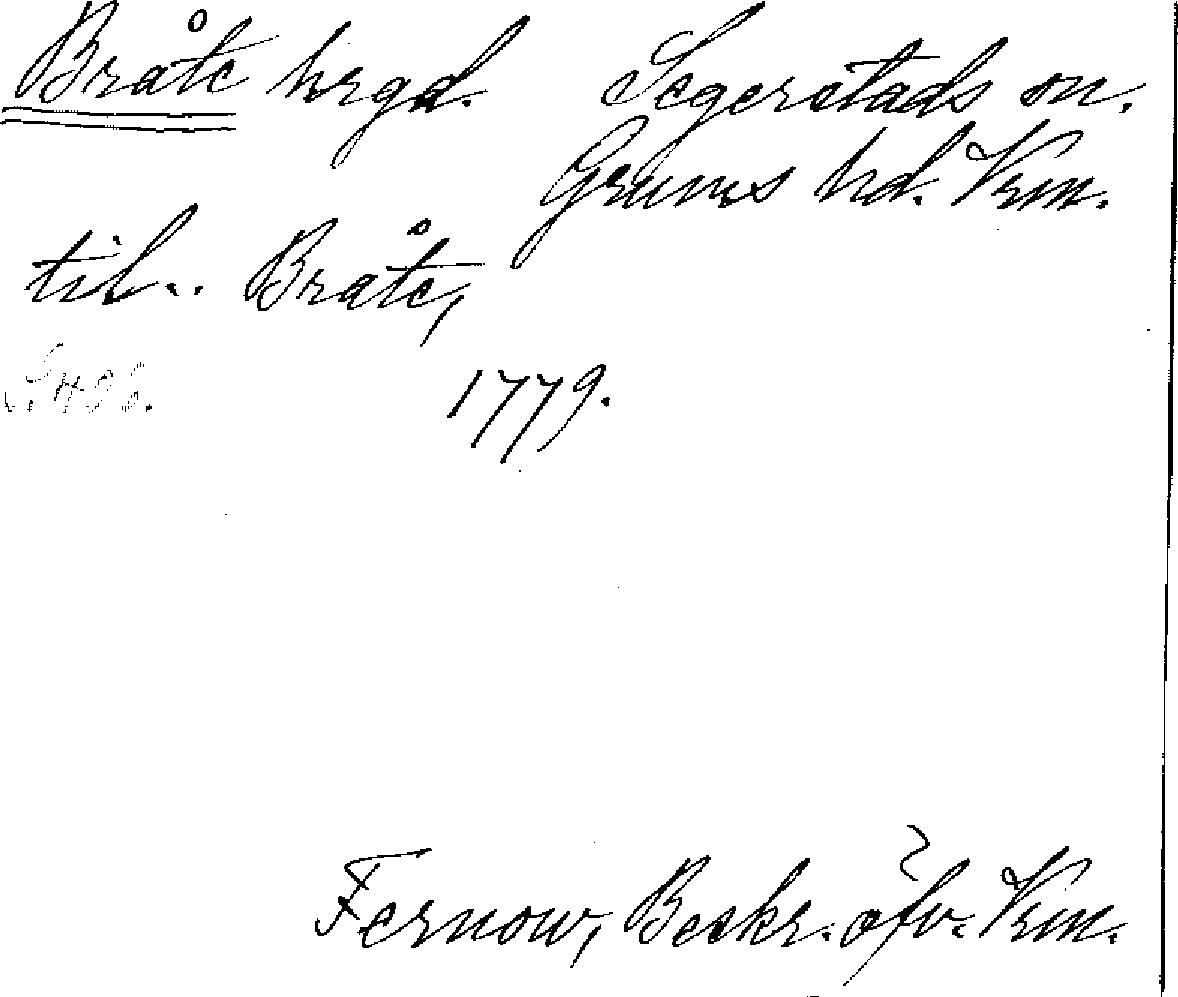 Bråte hrgd. Segerstads sn.
Grums hd. Vrm.
til.. Bråte,
1779.
Fernow, Beskr. öfv. Vrm.